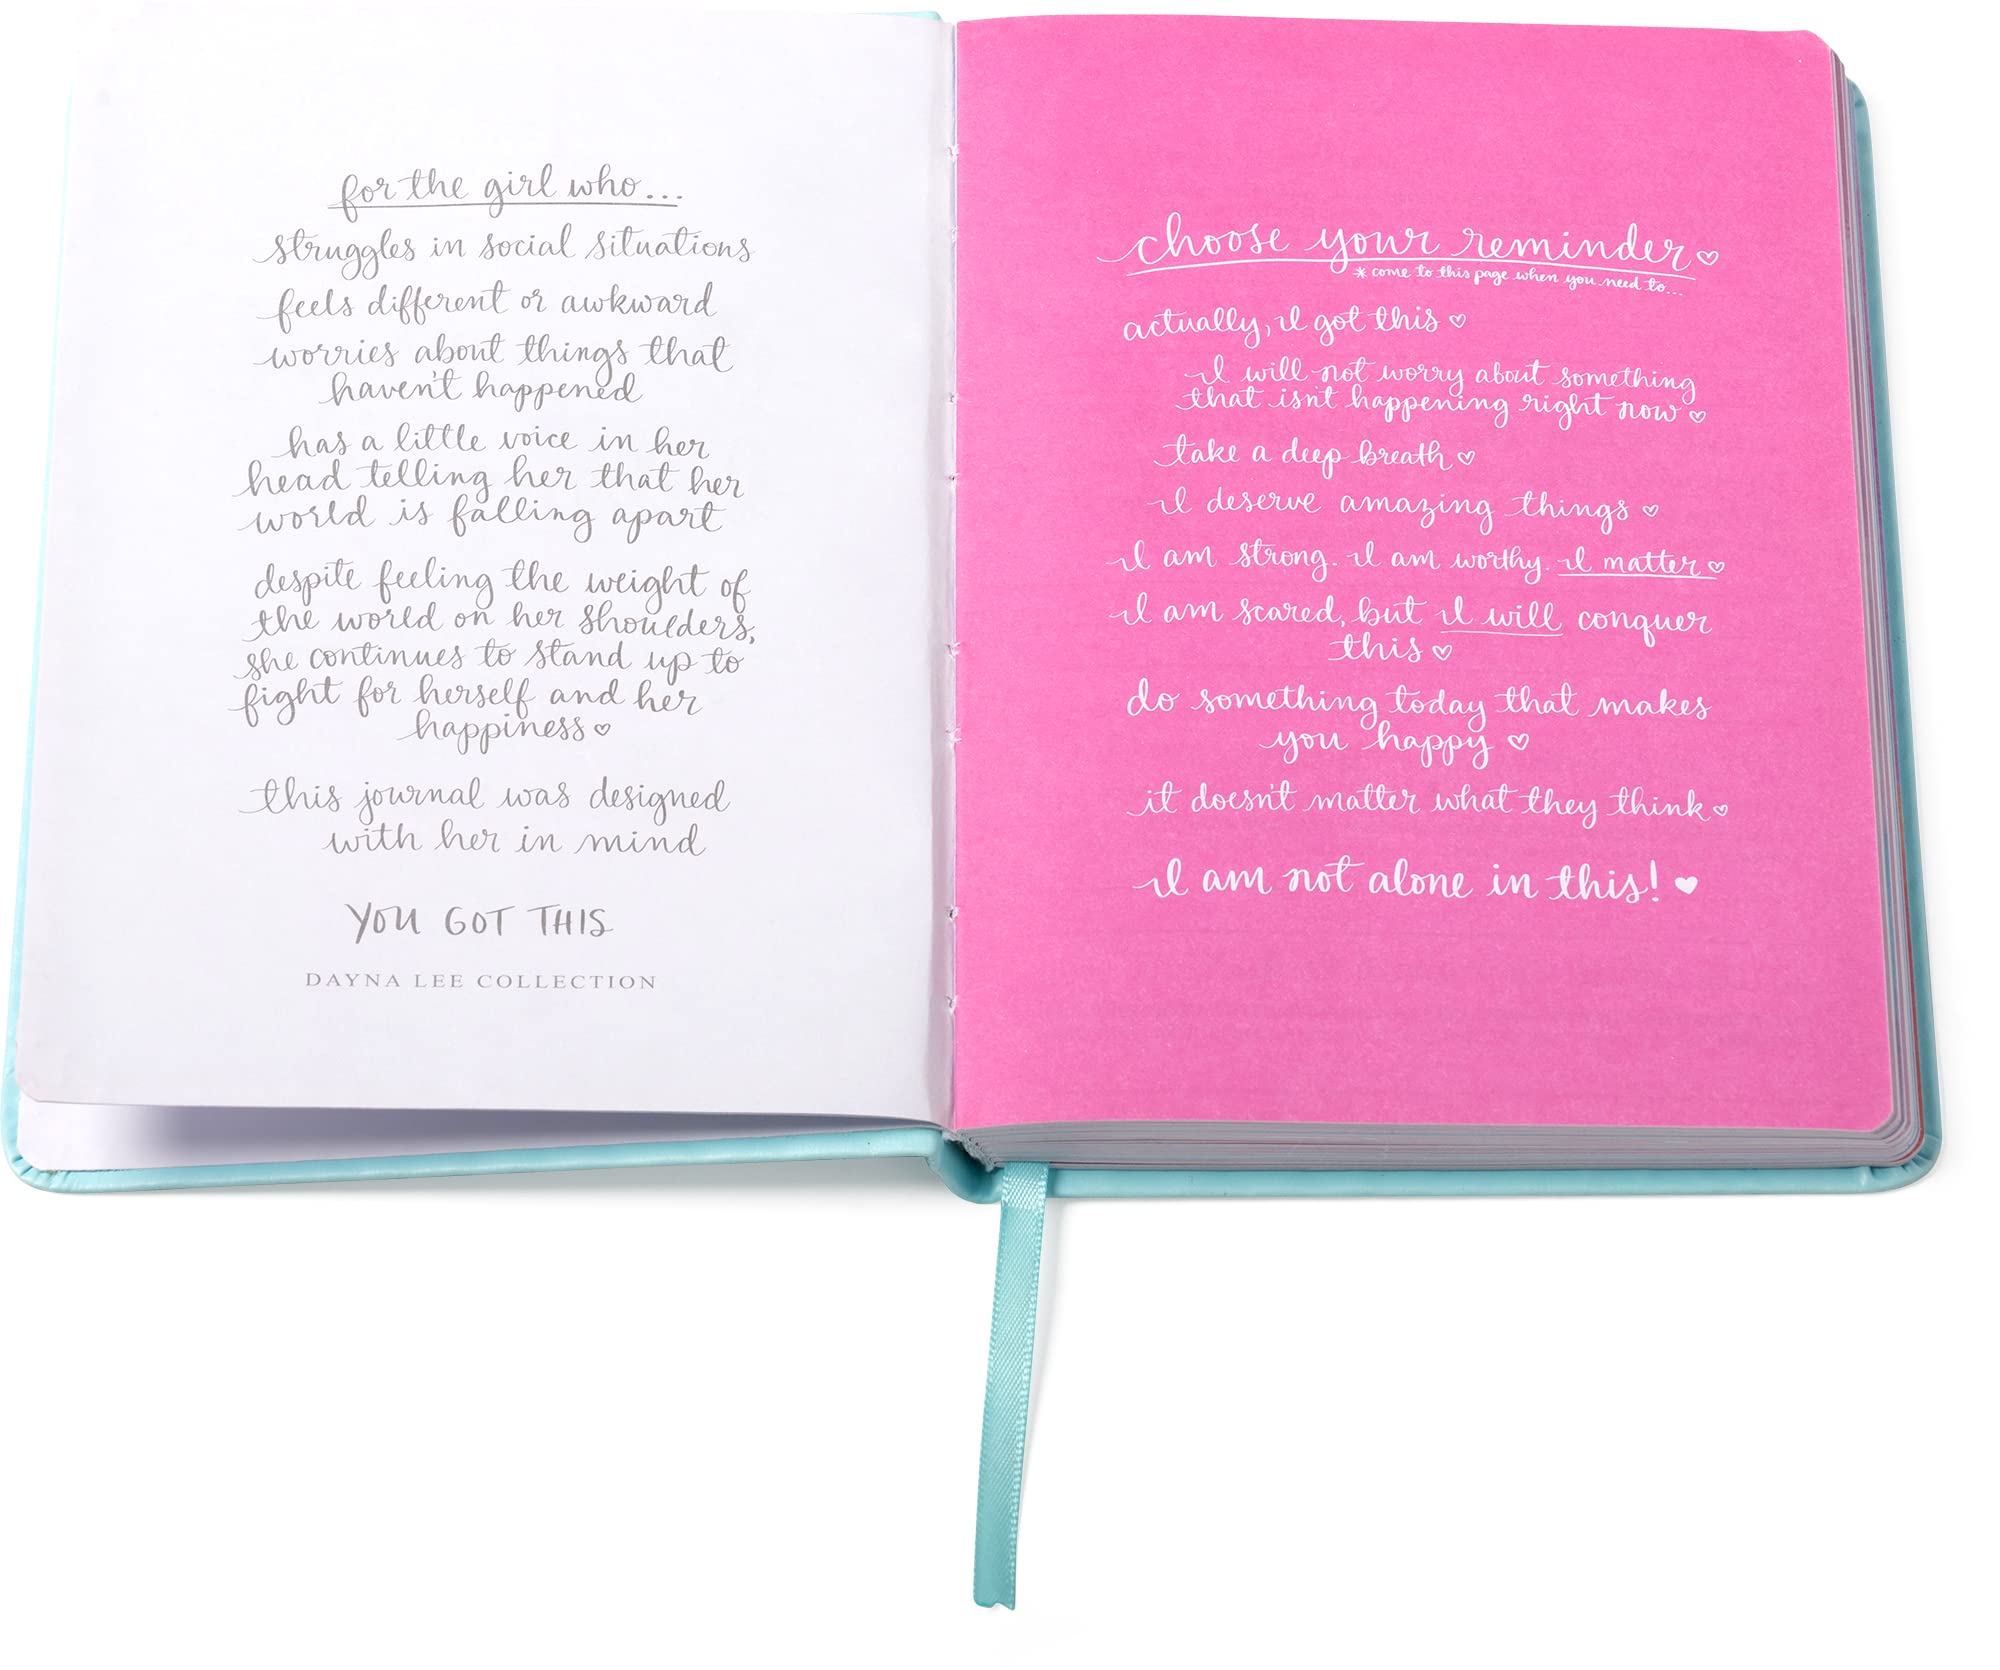 for the girl who...
struggles in social situations
feels different or awkward
worries about things that
haven't happened
has a little voice in her
head telling her that her
world is falling apart
despite feeling the weight of
the world on her shoulders,
she continues to stand up to
fight for herself and her
happiness ♡
this journal was designed
with her in mind
YOU GOT THIS
DAYNA LEE COLLECTION
choose your reminder ♡
* come to this page when you need to...
actually, I got this ♡
I will not worry about something
that isn't happening right now ♡
take a deep breath ♡
I deserve amazing things ♡
I am strong. I am worthy. I matter ♡
I am scared, but I will conquer
this ♡
do something today that makes
you happy ♡
it doesn't matter what they think ♡
I am not alone in this! ♥